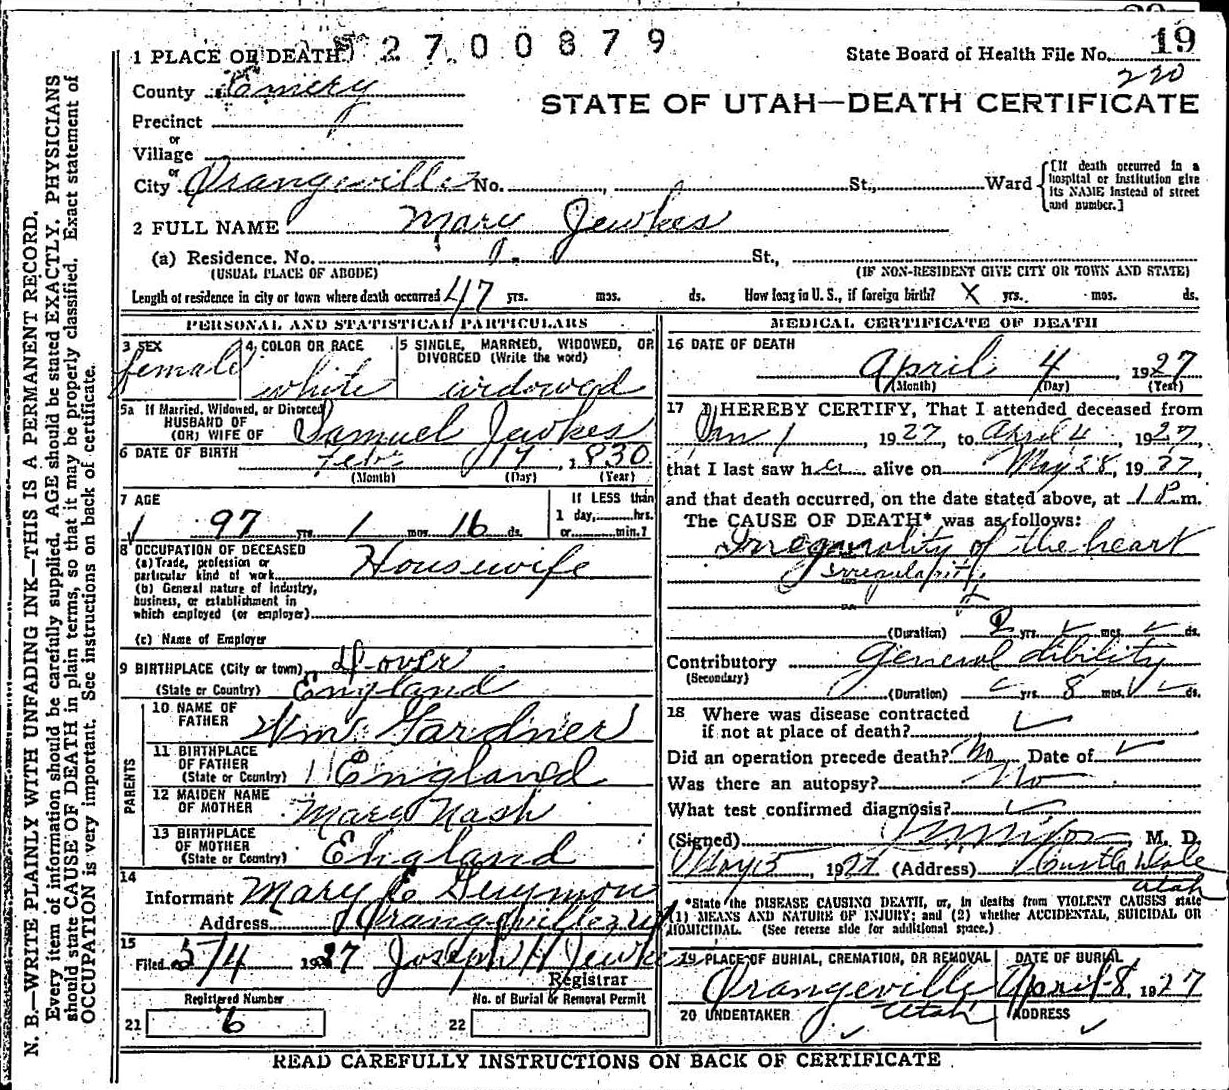 19
1 PLACE OF DEATH 2700879 State Board of Health File No. 220
County Emery
STATE OF UTAH—DEATH CERTIFICATE
Precinct
or
Village
or
City Orangeville No. , St., Ward [If death occurred in a hospital or institution give its NAME instead of street and number.]
2 FULL NAME Mary Jewkes
(a) Residence. No. St.,
(USUAL PLACE OF ABODE) (IF NON-RESIDENT GIVE CITY OR TOWN AND STATE)
Length of residence in city or town where death occurred 47 yrs. mos. ds. How long in U. S., if foreign birth? X yrs. mos. ds.
PERSONAL AND STATISTICAL PARTICULARS
3 SEX female
4 COLOR OR RACE white
5 SINGLE, MARRIED, WIDOWED, OR DIVORCED (Write the word) widowed
5a If Married, Widowed, or Divorced
HUSBAND OF
(OR) WIFE OF Samuel Jewkes
6 DATE OF BIRTH Feb 19, 1830
(Month) (Day) (Year)
7 AGE 97 yrs. 1 mos. 16 ds.
If LESS than
1 day, hrs.
or min.?
8 OCCUPATION OF DECEASED
(a) Trade, profession or
particular kind of work Housewife
(b) General nature of industry,
business, or establishment in
which employed (or employer)
(c) Name of Employer
9 BIRTHPLACE (City or town) Dover
(State or Country) England
PARENTS
10 NAME OF FATHER Wm. Gardner
11 BIRTHPLACE OF FATHER (State or Country) England
12 MAIDEN NAME OF MOTHER Mary Nash
13 BIRTHPLACE OF MOTHER (State or Country) England
14
Informant Mary E Guymon
Address Orangeville
15
Filed 5/4 1927 Joseph H Jewkes
Registrar
Registered Number No. of Burial or Removal Permit
21 6 22
MEDICAL CERTIFICATE OF DEATH
16 DATE OF DEATH
April 4 1927
(Month) (Day) (Year)
17 I HEREBY CERTIFY, That I attended deceased from
Jan 1, 1927, to April 4, 1927,
that I last saw her alive on May 28, 1927,
and that death occurred, on the date stated above, at 1 P m.
The CAUSE OF DEATH* was as follows:
of the heart
Irregularity
(Duration) 2 yrs. mos. ds.
Contributory General dibility
(Secondary)
(Duration) yrs. 8 mos. ds.
18 Where was disease contracted
if not at place of death?
Did an operation precede death? No Date of
Was there an autopsy? No
What test confirmed diagnosis?
(Signed) M. D.
May 5, 1927 (Address) Castle Dale
Utah
*State the DISEASE CAUSING DEATH, or, in deaths from VIOLENT CAUSES state
(1) MEANS AND NATURE OF INJURY; and (2) whether ACCIDENTAL, SUICIDAL OR
HOMICIDAL. (See reverse side for additional space.)
19 PLACE OF BURIAL, CREMATION, OR REMOVAL DATE OF BURIAL
Orangeville Utah April 8, 1927
20 UNDERTAKER ADDRESS
READ CAREFULLY INSTRUCTIONS ON BACK OF CERTIFICATE
N. B.—WRITE PLAINLY WITH UNFADING INK—THIS IS A PERMANENT RECORD.
Every item of information should be carefully supplied. AGE should be stated EXACTLY. PHYSICIANS
should state CAUSE OF DEATH in plain terms, so that it may be properly classified. Exact statement of
OCCUPATION is very important. See instructions on back of certificate.